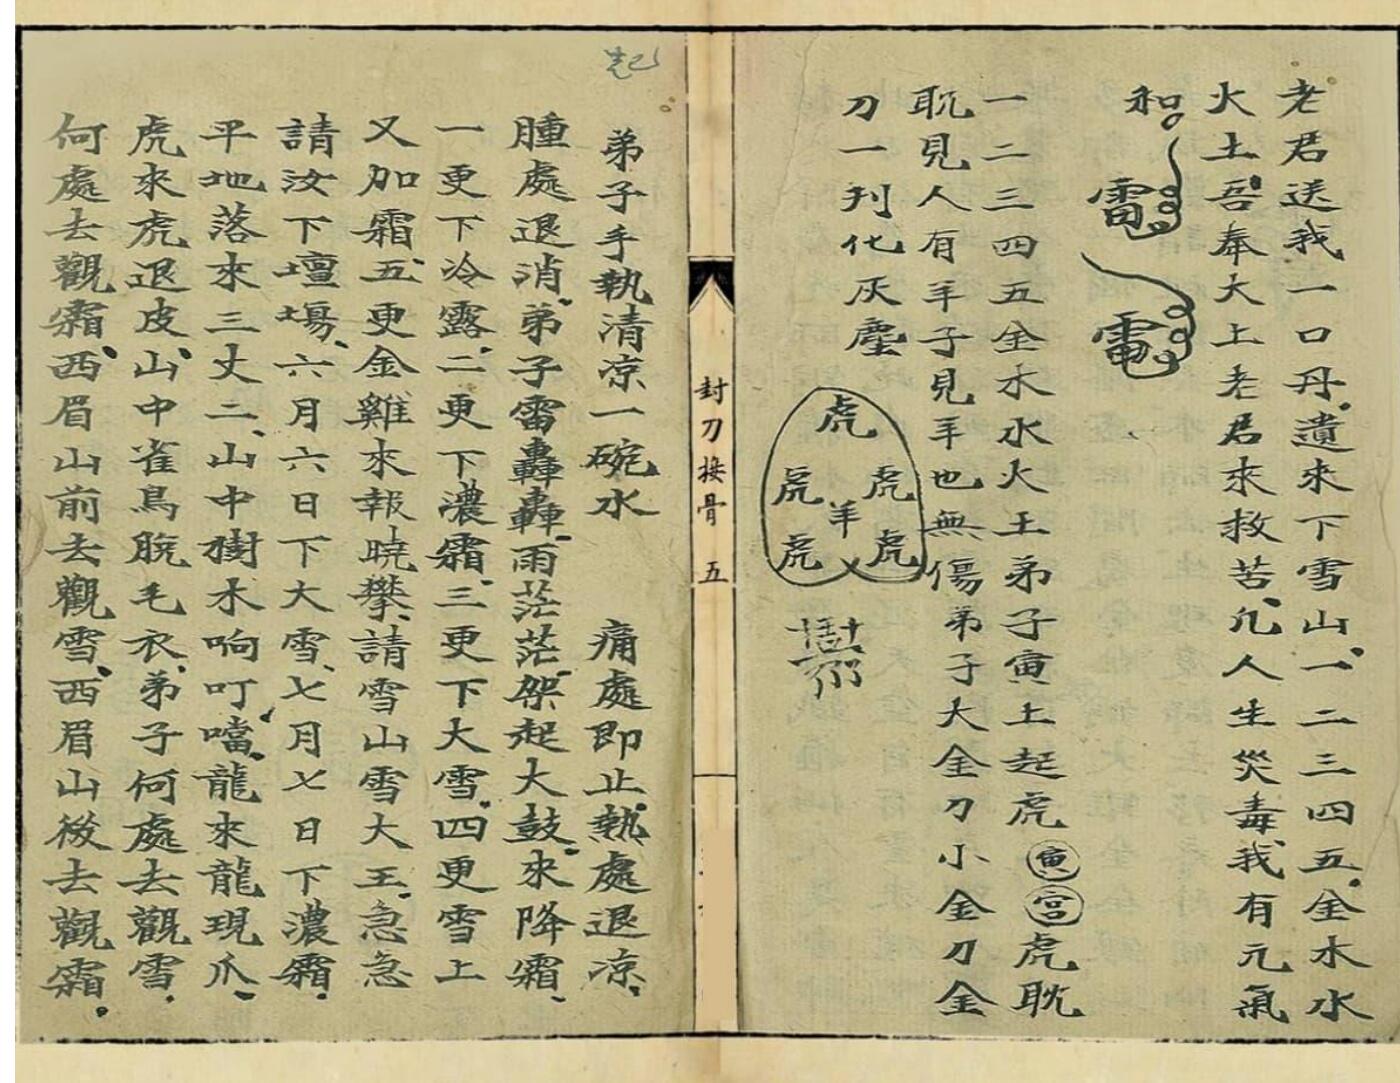 老君送我一口丹遺來下雪山一二三四五金木水
火土吾奉大上老君來救苦凡人生災毒我有元氣
和
雷
電
一二三四五金木水火土弟子寅上起虎寅宮虎耽
耽見人有羊子見羊也無傷弟子大金刀小金刀金
刀一刋化灰塵
虎
虎 虎
羊
虎 虎
封刀接骨 五
起
弟子手執清凉一碗水 痛處即止熱處退凉
腫處退消弟子雷轟轟雨茫茫架起大鼓來降霜
一更下冷露二更下濃霜三更下大雪四更雪上
又加霜五更金雞來報曉攀請雪山雪大王急急
請汝下壇場六月六日下大雪七月七日下濃霜
平地落來三丈二山中樹木响叮噹龍來龍現爪
虎來虎退皮山中雀鳥脫毛衣弟子何處去觀雪
何處去觀霜西眉山前去觀雪西眉山後去觀霜